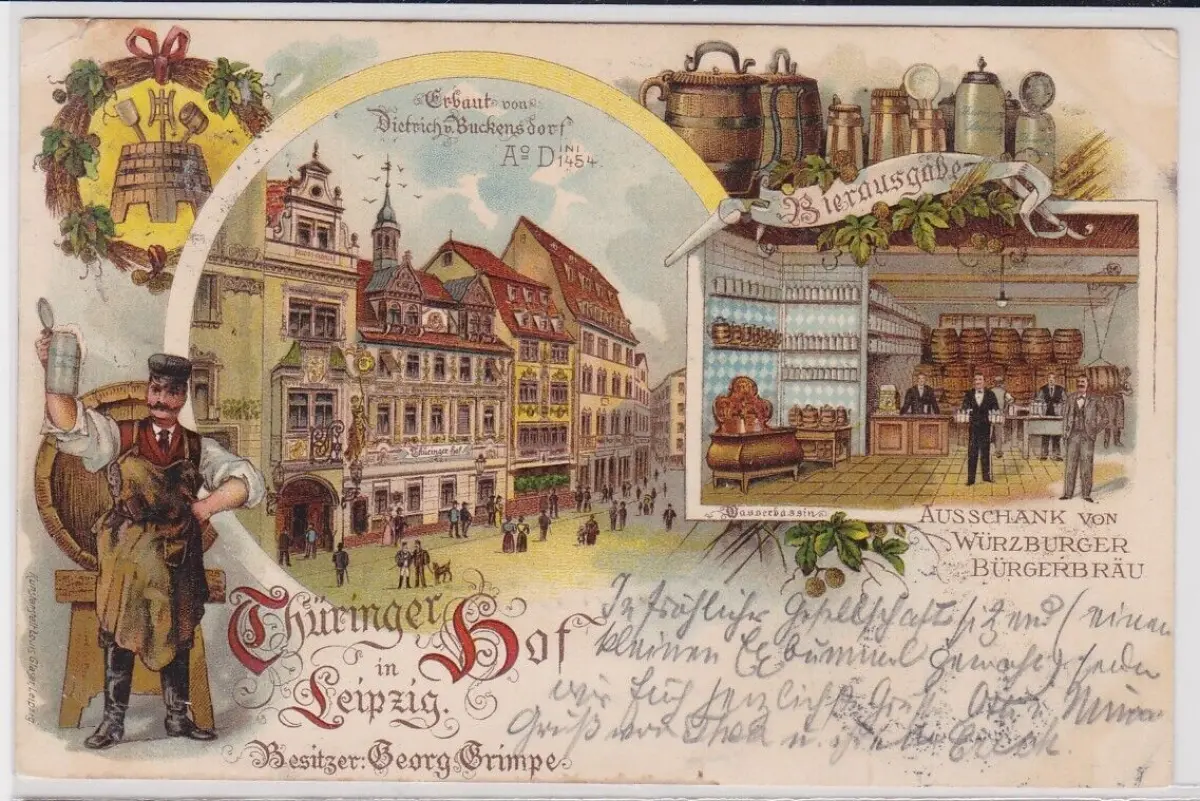 Erbaut von
Dietrich v. Buckensdorf
Aº DINI
1454.
Bierausgabe
Thüringer Hof
Wasserbassin
AUSSCHANK VON
WÜRZBURGER
BÜRGERBRÄU
Thüringer Hof
in
Leipzig.
Besitzer: Georg Grimpe
In fröhlicher Gesellschaft sitzend (einen
kleinen Exbummel gemacht) senden
wir Euch herzlichste Grüße
Gruß von